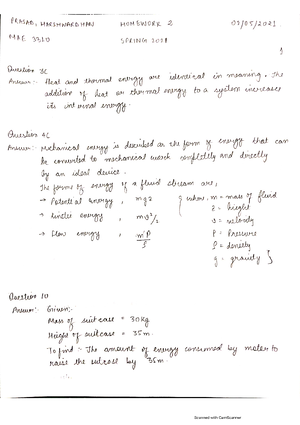 PRASAD, HARSHWARDHAN HOMEWORK 2 07/05/2021
MAE 3310 SPRING 2021
1
Question 3C
Answer:- Heat and thermal energy are identical in meaning. The
addition of heat or thermal energy to a system increases
its internal energy.
Question 4C
Answer:- Mechanical energy is described as the form of energy that can
be converted to mechanical work completely and directly
by an ideal device.
The forms of energy of a fluid stream are,
→ Potential Energy, mgz { where, m = mass of fluid
z = height
→ Kinetic energy, mv²/2 v = velocity
→ Flow energy, mP/ρ P = Pressure
ρ = density
g = gravity }
Question 10
Answer:- Given:-
Mass of suitcase = 30kg
Height of suitcase = 35m.
To find:- The amount of energy consumed by motor to
raise the suitcase by 35m
Scanned with CamScanner